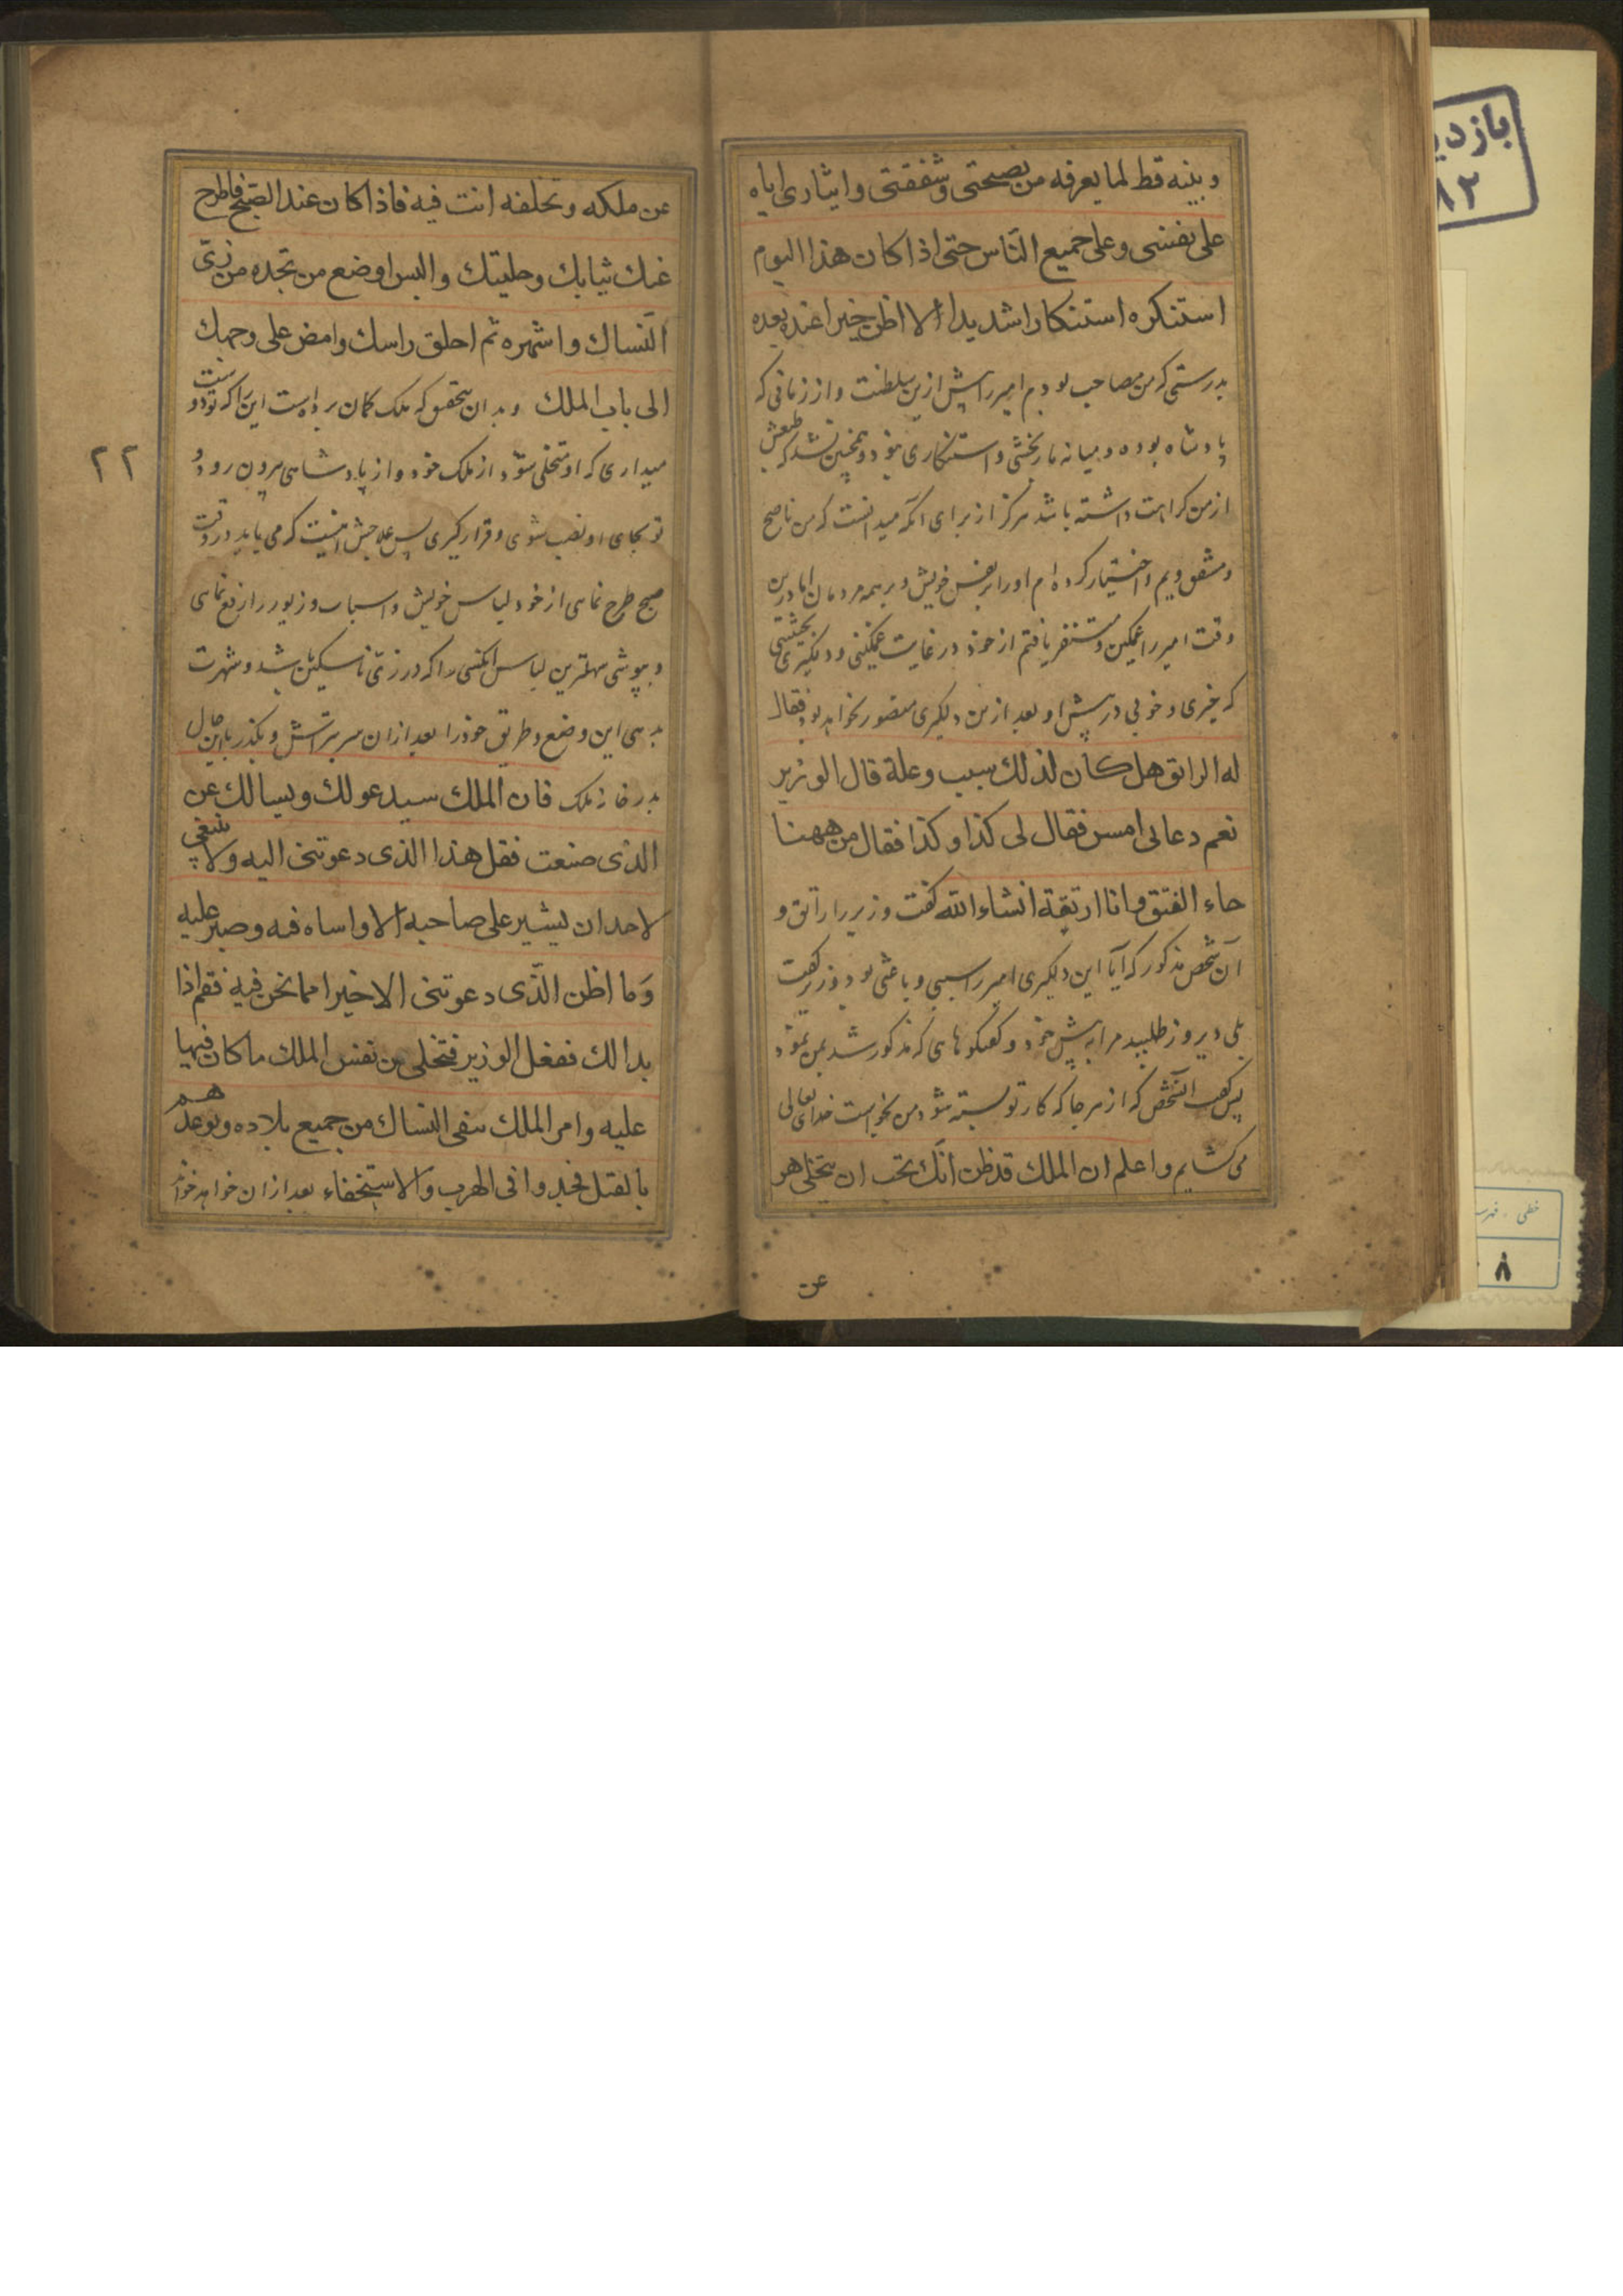 وبینه قط لما یعرفه من نصیحتی وشفقتی وایثاری ایاه
علی نفسی وعلی جمیع النّاس حتی اذا کان هذا الیوم
استنکره استنکارا شدیدا لا اظن خیرا عنده بعده
بدرستی که من مصاحب بودم امیر را پیش ازین سلطنت و از زمانی که
پادشاه بوده و میانه ما رنجشی و استنکاری نبود و همچنین نشد که طبعش
از من کراهت داشته باشد هرگز از برای آنکه میدانست که من ناصح
ومشفق ویم واختیار کرده ام اورا بر نفس خویش و بر همه مردمان اما درین
وقت امیر را غمگین و متنفر یافتم از خود در غایت غمگینی و دلگیری بحیثیتی
که خیری و خوبی در پیش او بعد ازمن دیگری متصور نخواهد بود فقال
له الراتق هل کان لذلك سبب وعلة قال الوزیر
نعم دعانی امس فقال لی کذا وکذا فقال من ههنا
جاء الفتق وانا ارتقة انشاء الله گفت وزیر را راتق و
آن شخص مذکور که آیا این دلگیری امیر را سببی و باعثی بود وزیر گفت
بلی دیروز طلبید مرا به پیش خود و گفتگوهای که مذکور شد بمن نمود
پس گفت آنشخص که از هر جا که کار تو بسته شود من بخواست خدای تعالی
می گشایم واعلم ان الملك قد ظن انّك تحب ان یتخلی هو
عن
عن ملکه وتخلفه انت فیه فاذا کان عند الصّبح فاطرح
عنك ثیابك وحلیتك والبس اوضع من تجده من زیّ
النّساك واشهره ثم احلق راسك وامض علی وجهك
الی باب الملك وبدان بتحقیق که ملک گمان برده است این را که تو دوست
میداری که او متخلی شود از ملک خود و از پادشاهی بیرون رود و
تو بجای او نصب شوی و قرار گیری پس علاجش اینست که می باید در وقت
صبح طرح نمای از خود لباس خویش و اسباب و زیور را رفع نمای
و بپوشی سهلترین لباس آنکسی را که در زیّ ناسکین باشد و شهرت
بدهی این وضع و طریق خود را بعد ازان سر بتراش و بگذر باین حال
بدر خانه ملک فان الملك سیدعولك ویسالك عن
الذی صنعت فقل هذا الذی دعوتنی الیه ولا ینبغی
لاحد ان یشیر علی صاحبه الا واساه فیه وصبر علیه
وما اظن الّذی دعوتنی الا خیرا مما نحن فیه فقم اذا
بدالك ففعل الوزیر فتخلی من نفس الملك ما کان فیها
علیه وامر الملك بنفی النساك من جمیع بلاده وتوعدهم
بالقتل فجدوا فی الهرب والاستخفاء بعد ازان خواهد خواند
۲۲
۸